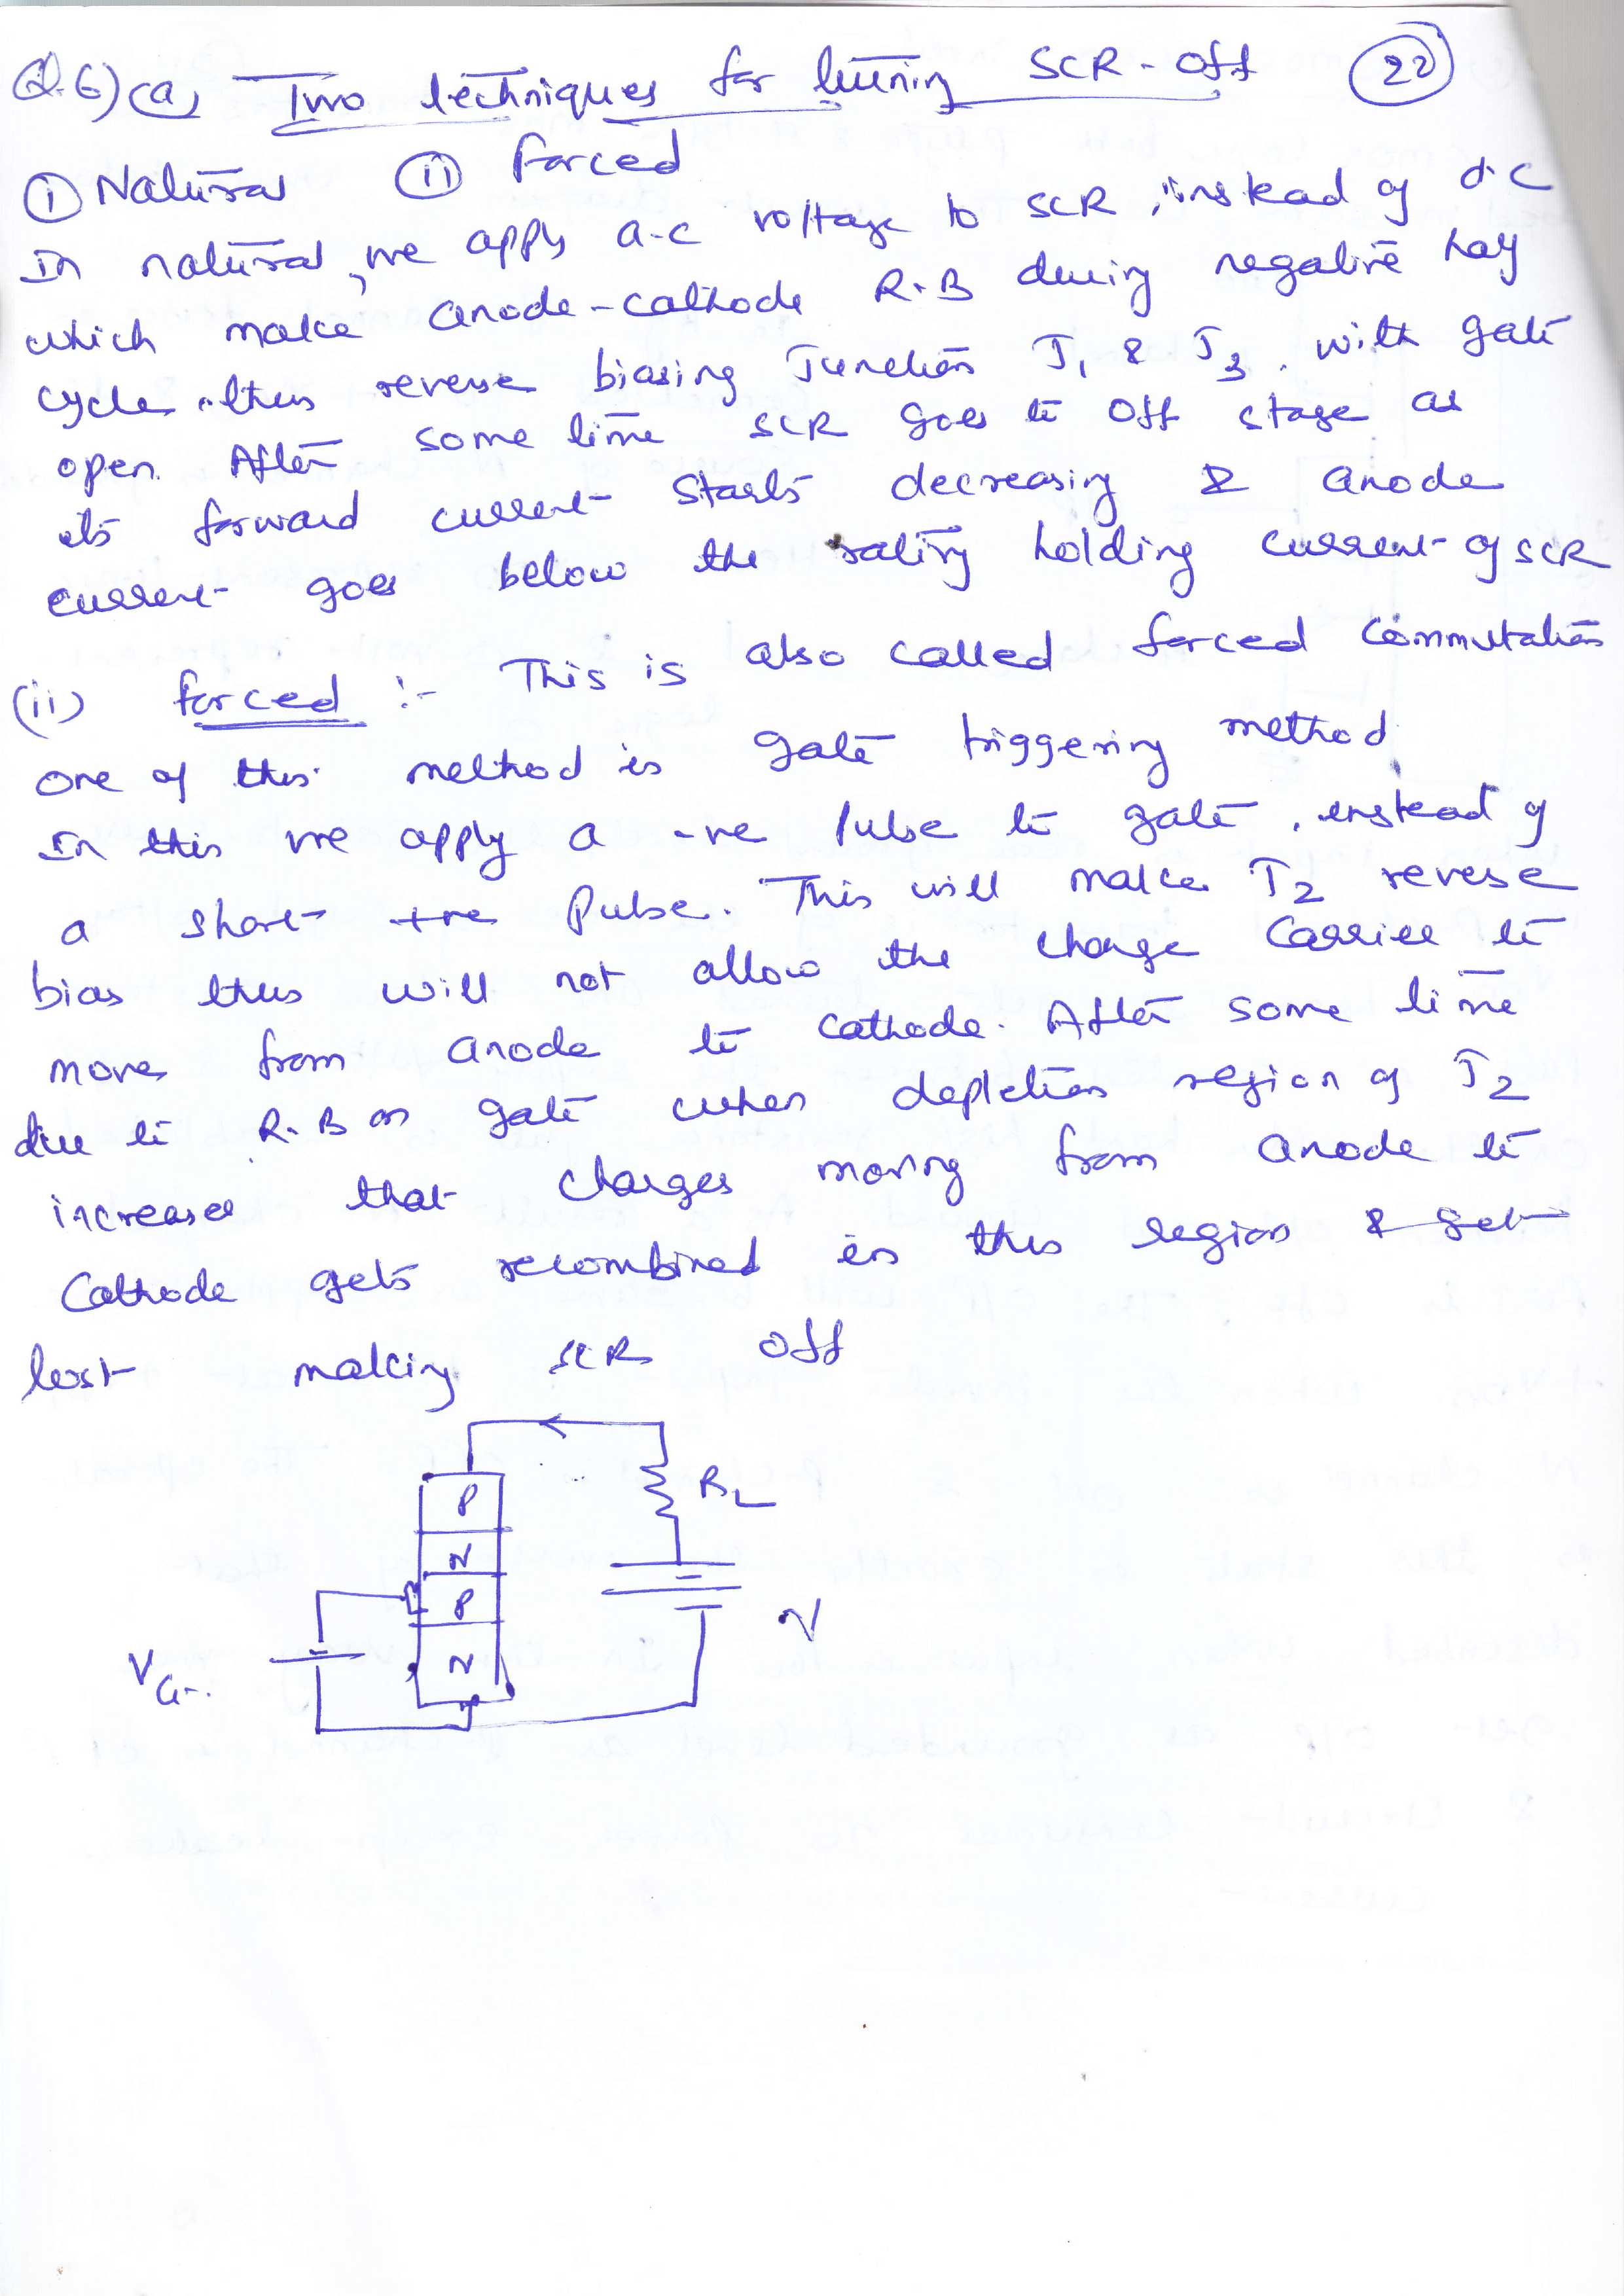 Q.6)(a) Two techniques for turning SCR-off 22
(i) Natural (ii) Forced
In natural, we apply a-c voltage to SCR, instead of d.c
which make anode-cathode R.B during negative half
cycle. thus reverse biasing Junction J1 & J3. with gate
open. After some time SCR goes to off stage as
its forward current starts decreasing & anode
current goes below the rating holding current of SCR
(ii) forced :- This is also called forced commutation
one of this method is gate triggering method
In this we apply a -ve pulse to gate, instead of
a short +ve pulse. This will make J2 reverse
bias thus will not allow the charge carrier to
move from anode to cathode. After some time
due to R.B on gate when depletion region of J2
increases that charges moving from anode to
Cathode gets recombined in this region & get
lost making SCR off
P
RL
N
P
V
N
VG